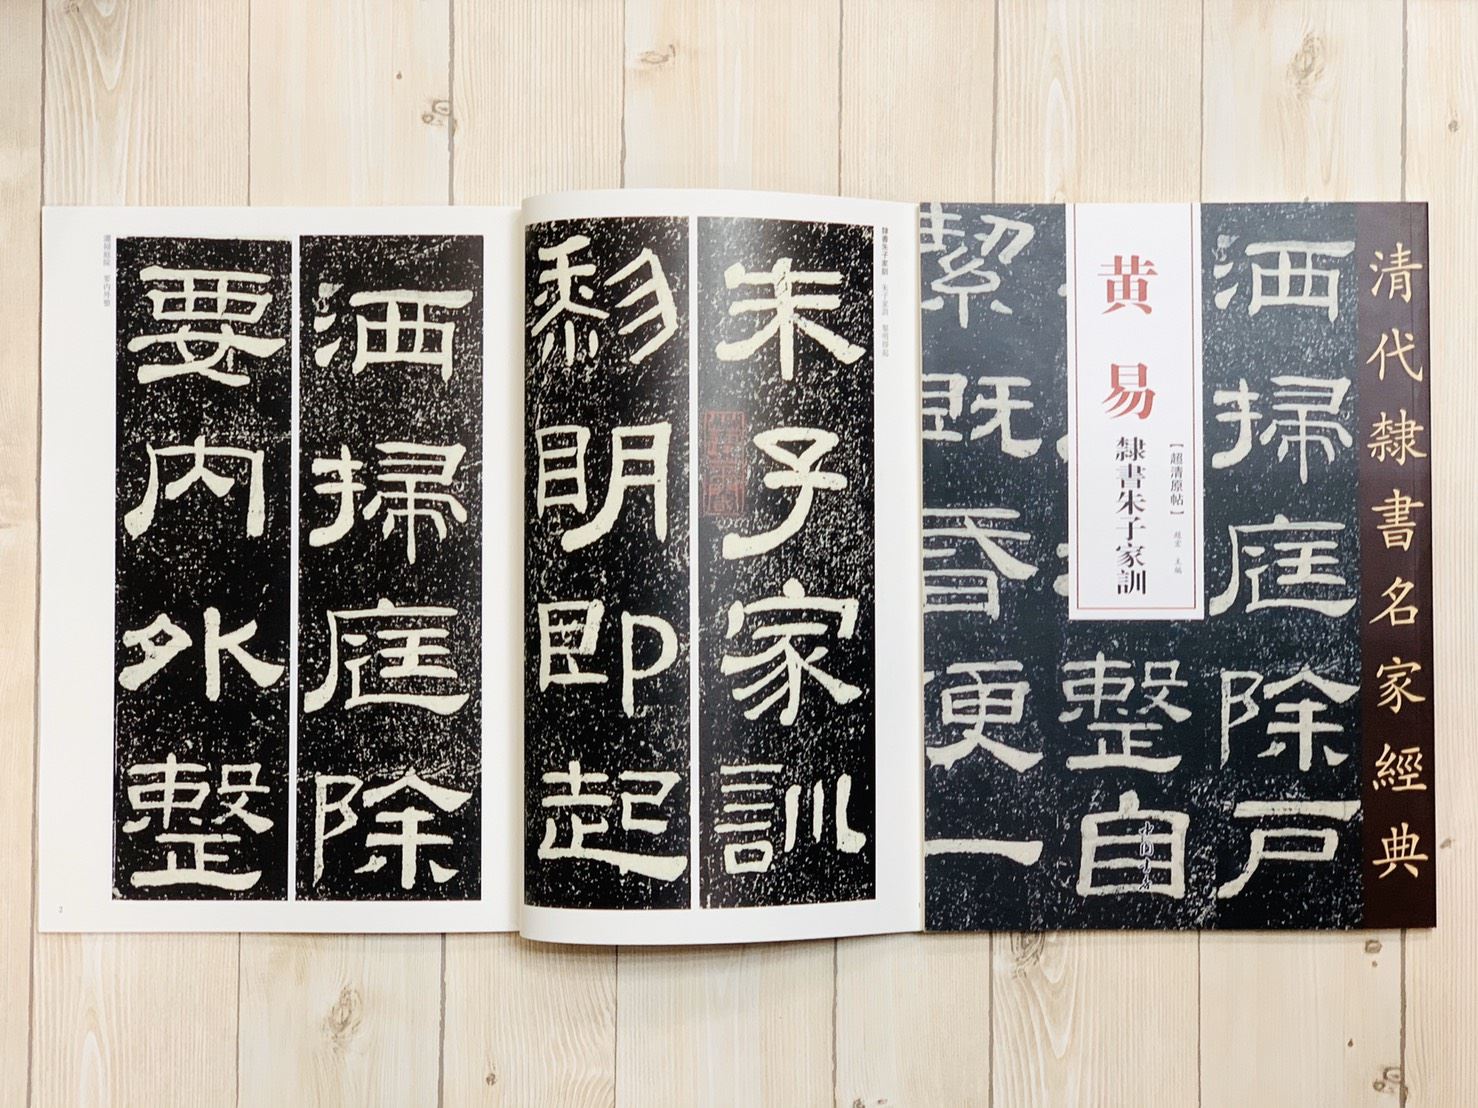 清代隸書名家經典
黄易
隸書朱子家訓
【超清原帖】
主編
洒掃庭除戸
整自
絜
既昏便一
隸書朱子家訓 朱子家訓 黎明即起
朱子家訓
黎明即起
灑掃庭除 要内外整
洒掃庭除
要内外整
2